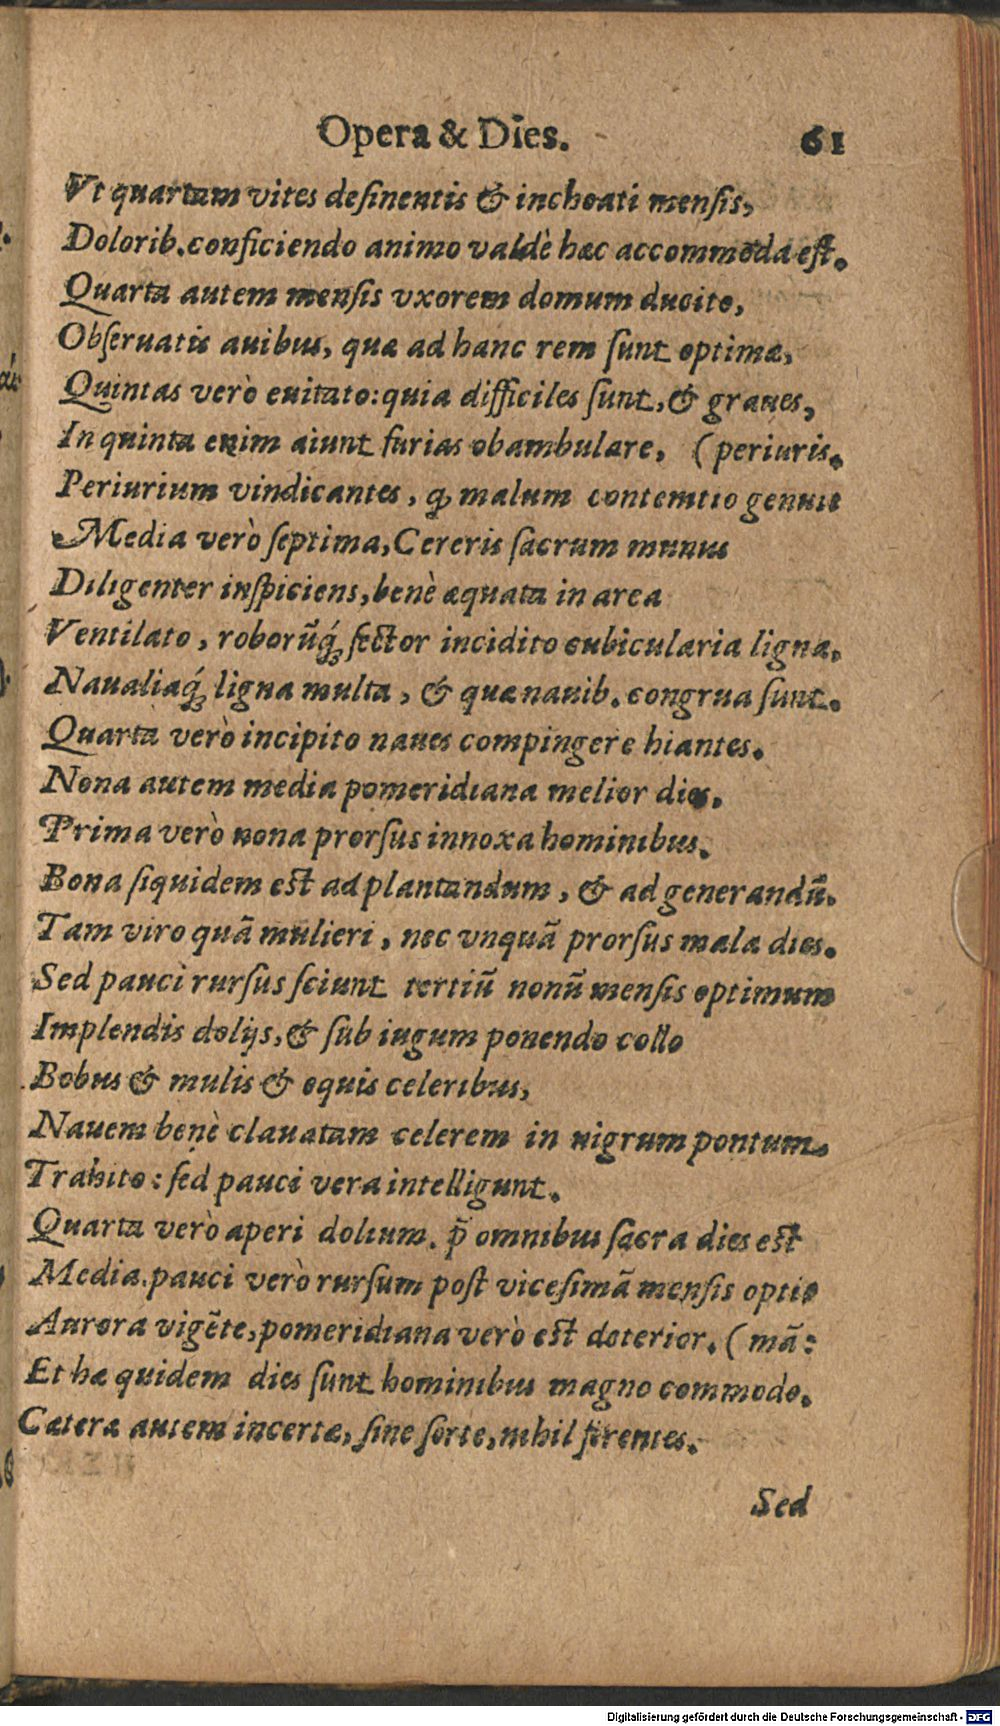 Opera & Dies. 61
Vt quartam vites desinentis & inchoati mensis,
Dolorib. conficiendo animo valdè hæc accommoda est.
Quarta autem mensis vxorem domum ducito,
Obseruatis auibus, quæ ad hanc rem sunt optimæ,
Quintas verò euitato: quia difficiles sunt, & graues,
In quinta enim aiunt furias obambulare, (periuris.
Periurium vindicantes, q̃ malum contemtio genuit
Media verò septima, Cereris sacrum munus
Diligenter inspiciens, benè æquata in area
Ventilato, roborũq́; sector incidito cubicularia ligna,
Naualiaq́; ligna multa, & quæ nauib. congrua sunt.
Quarta verò incipito naues compingere hiantes.
Nona autem media pomeridiana melior dies,
Prima verò nona prorsus innoxa hominibus.
Bona siquidem est ad plantandum, & ad generandũ.
Tam viro quã mulieri, nec vnquã prorsus mala dies.
Sed pauci rursus sciunt tertiũ nonũ mensis optimum
Implendis dolijs, & sub iugum ponendo collo
Bobus & mulis & equis celeribus,
Nauem benè clauatam celerem in nigrum pontum
Trahito: sed pauci vera intelligunt.
Quarta verò aperi dolium. p̃ omnibus sacra dies est
Media. pauci verò rursum post vicesimã mensis opti
Aurora vigẽte, pomeridiana verò est deterior. (mã:
Et hæ quidem dies sunt hominibus magno commodo.
Cæteræ autem incertæ, sine sorte, nihil ferentes.
Sed
Digitalisierung gefördert durch die Deutsche Forschungsgemeinschaft - DFG